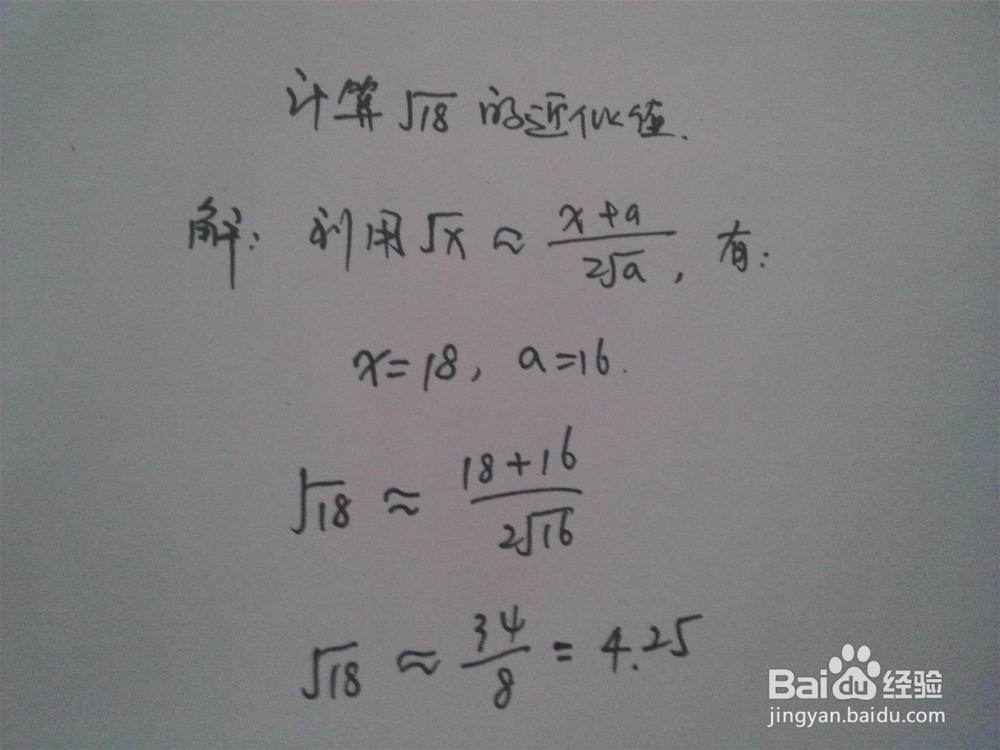 计算√18 的近似值.
解: 利用√x ≈ (x+a)/(2√a), 有:
x=18, a=16.
√18 ≈ (18+16)/(2√16)
√18 ≈ 34/8 = 4.25
Baidu经验
jingyan.baidu.com